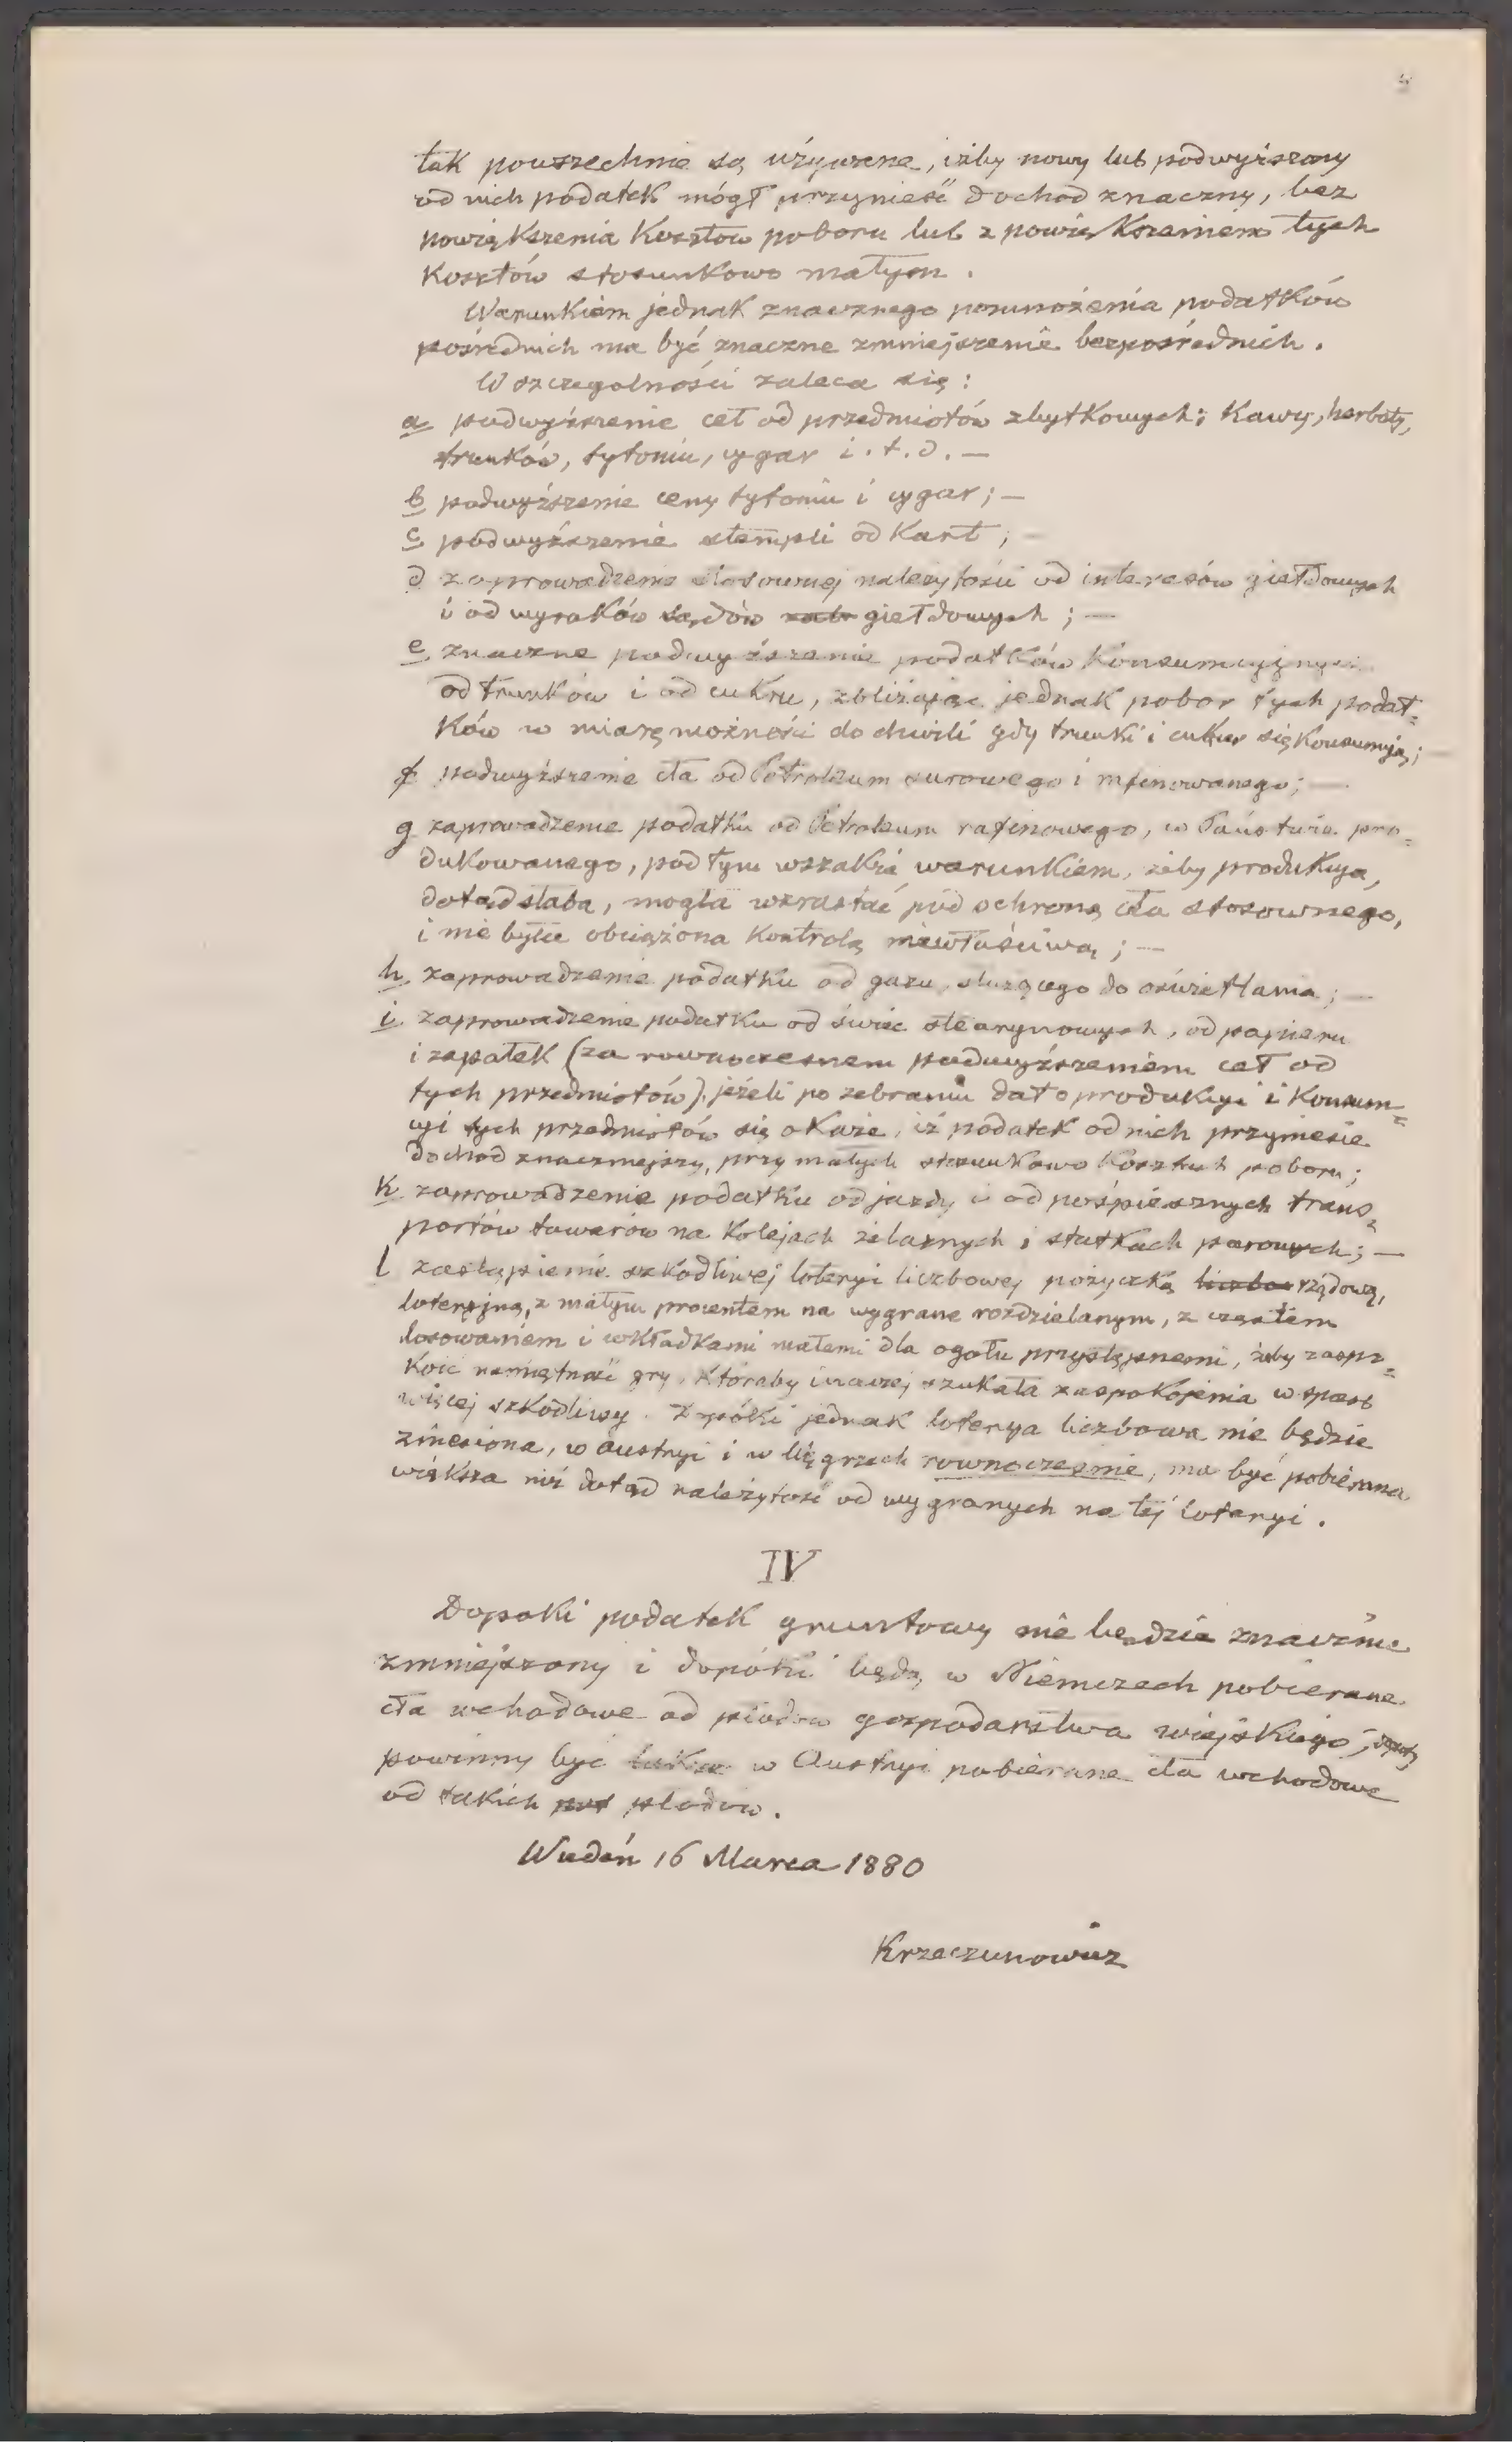 tak powszechnie są używane, iżby nowy lub podwyższony
od nich podatek mógł przynieść dochod znaczny, bez
powiększenia Kosztow poboru lub z powiększeniem tych
Kosztów stosunkowo małym.
Warunkiem jednak znacznego pomnożenia podatków
pośrednich ma być znaczne zmniejszenie bezpośrednich.
W szczegolności zaleca się:
a podwyższenie ceł od przedmiotów zbytkowych: Kawy, herbaty,
trunków, tytoniu, cygar i. t. d. —
b podwyższenie ceny tytoniu i cygar; —
c podwyższenie stempli od Kart; —
d zaprowadzenie stosownej należytości od interesów giełdowych
i od wyroków sądów giełdowych; —
e znaczne podwyższenie podatków Konsumcyjnych
od trunków i od cukru, zbliżając jednak pobor tych podat=
ków w miarę możności do chwili gdy trunki i cukier się Konsumują;
f podwyższenie cła od Petroleum surowego i rafinowanego; —
g zaprowadzenie podatku od Petroleum rafinowego, w Państwie pro=
dukowanego, pod tym wszakże warunkiem, żeby produkcya,
dotąd słaba, mogła wzrastać pod ochroną cła stosownego,
i nie była obciążona Kontrolą niewłaściwą; —
h zaprowadzenie podatku od gazu, służącego do oświetlania; —
i zaprowadzenie podatku od świec stearynowych, od papieru
i zapałek (za rownoczesnem podwyższeniem ceł od
tych przedmiotów), jeżeli po zebraniu dat o produkcyi i Konsum=
cyi tych przedmiotów się okaże, iż podatek od nich przyniesie
dochod znaczniejszy, przy małych stosunkowo Kosztach poboru;
k zaprowadzenie podatku od jazdy i od pośpiesznych trans=
portów towarów na Kolejach żelaznych i statkach parowych; —
l zastąpienie szkodliwej loteryi liczbowej pożyczką liczbow rządową,
loteryjną, z małym procentem na wygrane rozdzielanym, z częstem
losowaniem i wkładkami małemi dla ogołu przystępnemi, żeby zaspo=
koić namiętność gry, Któraby inaczej szukała zaspokojenia w sposob
więcej szkodliwy. Dopóki jednak loterya liczbowa nie będzie
zniesiona, w Austryi i w Węgrzech rownocześnie, ma być pobierana
większa niż dotąd należytość od wygranych na tej loteryi.
IV
Dopoki podatek gruntowy nie będzie znacznie
zmniejszony i dopóki będą w Niemczech pobierane
cła wchodowe od płodow gospodarstwa wiejskiego, dopoty
powinny być także w Austryi pobierane cła wchodowe
od takich płodow.
Wiedeń 16 Marca 1880
Krzeczunowicz